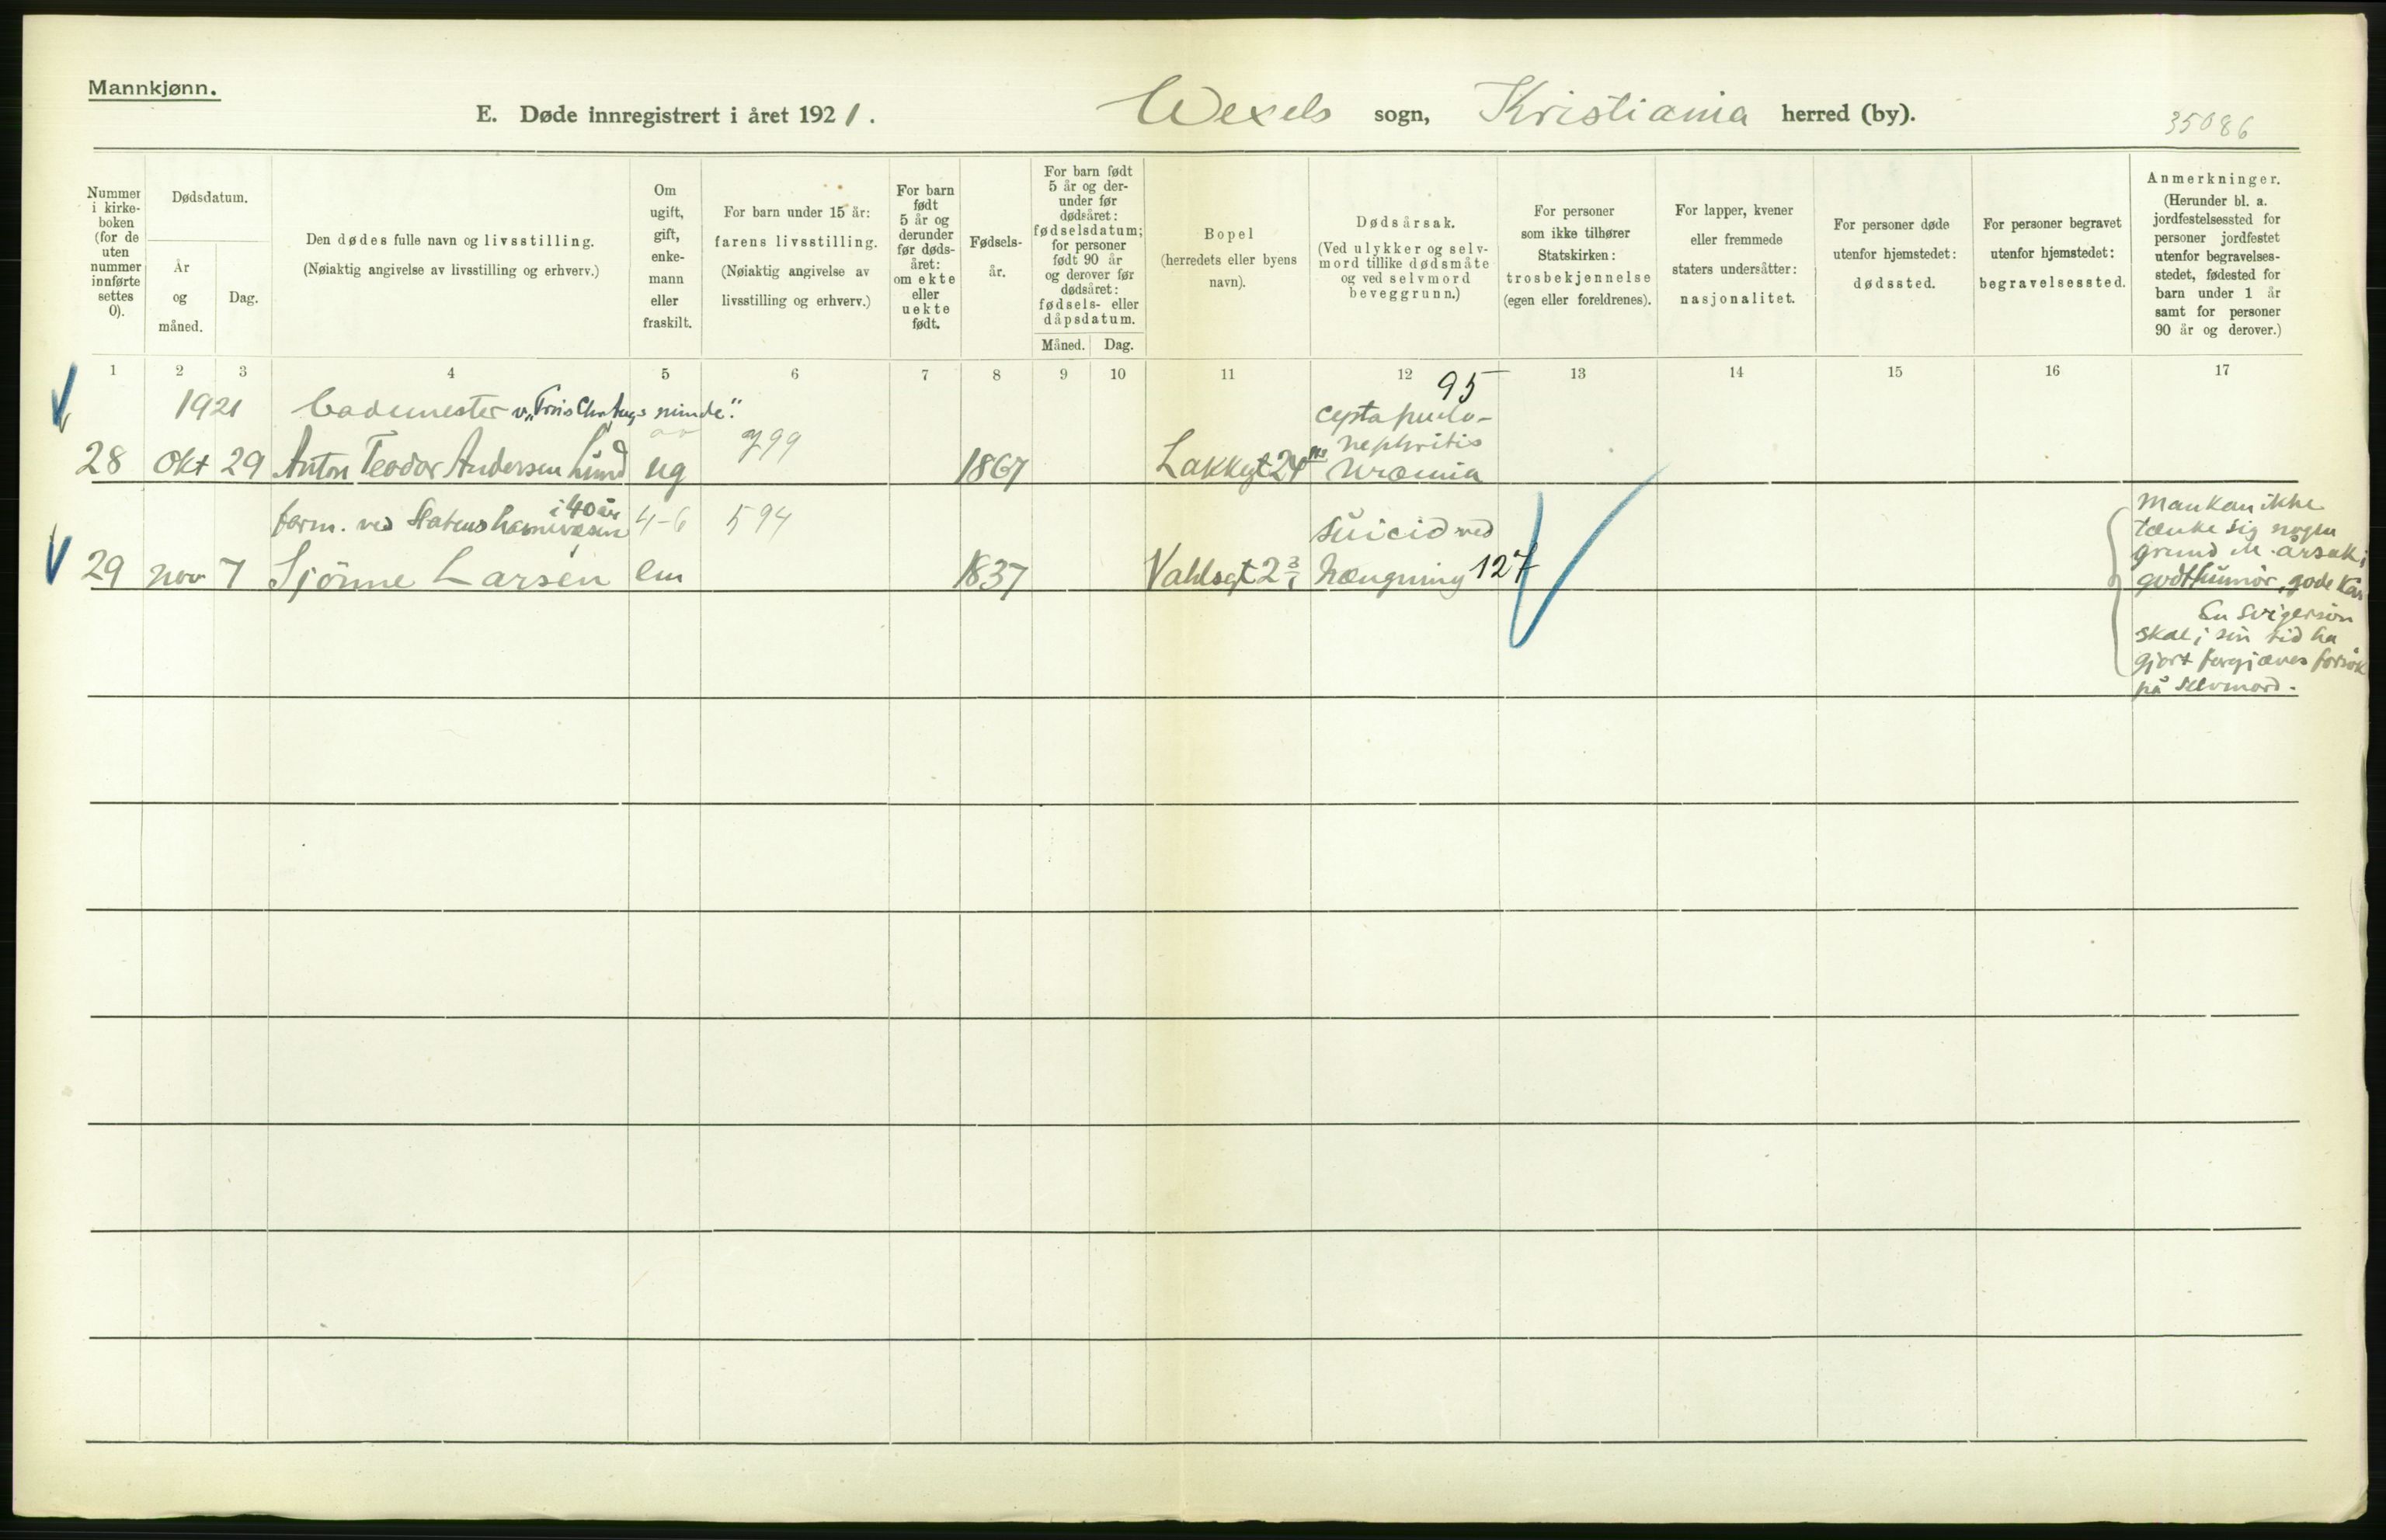 Mannkjønn.
E. Døde innregistrert i året 1921. Wexels sogn, Kristiania herred (by).
35086
Nummer i kirke-boken (for de uten nummer innførte settes 0).
Dødsdatum.
År og måned.
Dag.
Den dødes fulle navn og livsstilling.
(Nøiaktig angivelse av livsstilling og erhverv.)
Om ugift, gift, enke-mann eller fraskilt.
For barn under 15 år: farens livsstilling.
(Nøiaktig angivelse av livsstilling og erhverv.)
For barn født 5 år og derunder før døds-året: om ekte eller uekte født.
Fødsels-år.
For barn født 5 år og der-under før dødsåret: fødselsdatum; for personer født 90 år og derover før dødsåret: fødsels- eller dåpsdatum.
Måned. Dag.
Bopel
(herredets eller byens navn).
Dødsårsak.
(Ved ulykker og selv-mord tillike dødsmåte og ved selvmord beveggrunn.)
For personer som ikke tilhører Statskirken: trosbekjennelse (egen eller foreldrenes).
For lapper, kvener eller fremmede staters undersåtter: nasjonalitet.
For personer døde utenfor hjemstedet: dødssted.
For personer begravet utenfor hjemstedet: begravelsessted.
Anmerkninger.
(Herunder bl. a. jordfestelsessted for personer jordfestet utenfor begravelses-stedet, fødested for barn under 1 år samt for personer 90 år og derover.)
1 2 3 4 5 6 7 8 9 10 11 12 13 14 15 16 17
1921 bademester v. minde". 95
799
nephritis
28 Okt 29 Anton Teodor Andersen Lund ug 1867 Lakkegt 24 Uræmia
form. ved Statens havnevæsen i 40 år 4-6 594 suicid ved
29 nov 7 Sjönne Larsen em 1837 Vahlsgt 2 3/1 hængning 127
Man kan ikke
tænke sig nogen
grund el. årsak;
godt humör, gode kår
En svigersön
skal i sin tid ha
gjort forgjæves forsök
på selvmord.